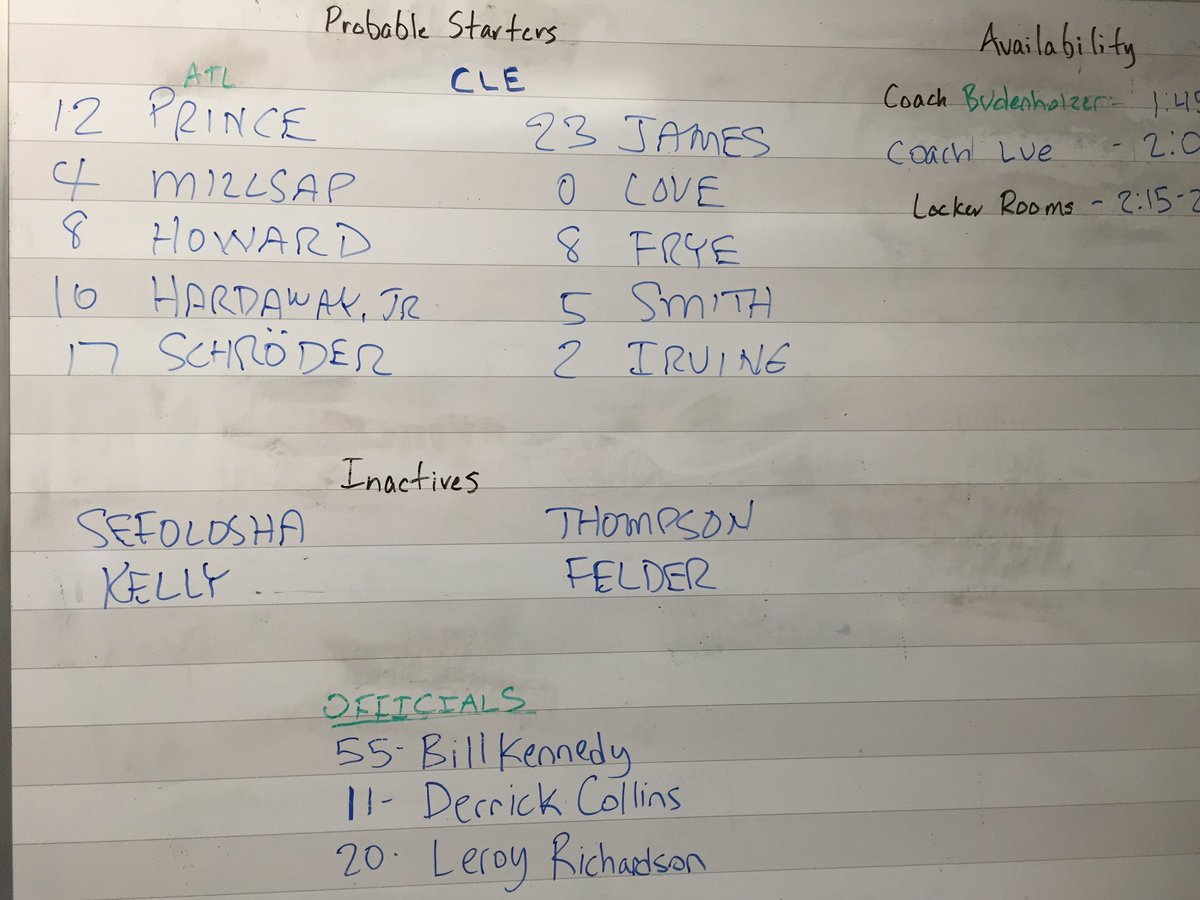 Probable Starters
ATL CLE
12 PRINCE 23 JAMES
4 MILLSAP 0 LOVE
8 HOWARD 8 FRYE
10 HARDAWAY, JR 5 SMITH
17 SCHRÖDER 2 IRVINE
Availability
Coach Budenholzer - 1:45
Coach Lue - 2:0
Locker Rooms - 2:15-2
Inactives
SEFOLOSHA THOMPSON
KELLY FELDER
OFFICIALS
55- Bill Kennedy
11- Derrick Collins
20- Leroy Richardson